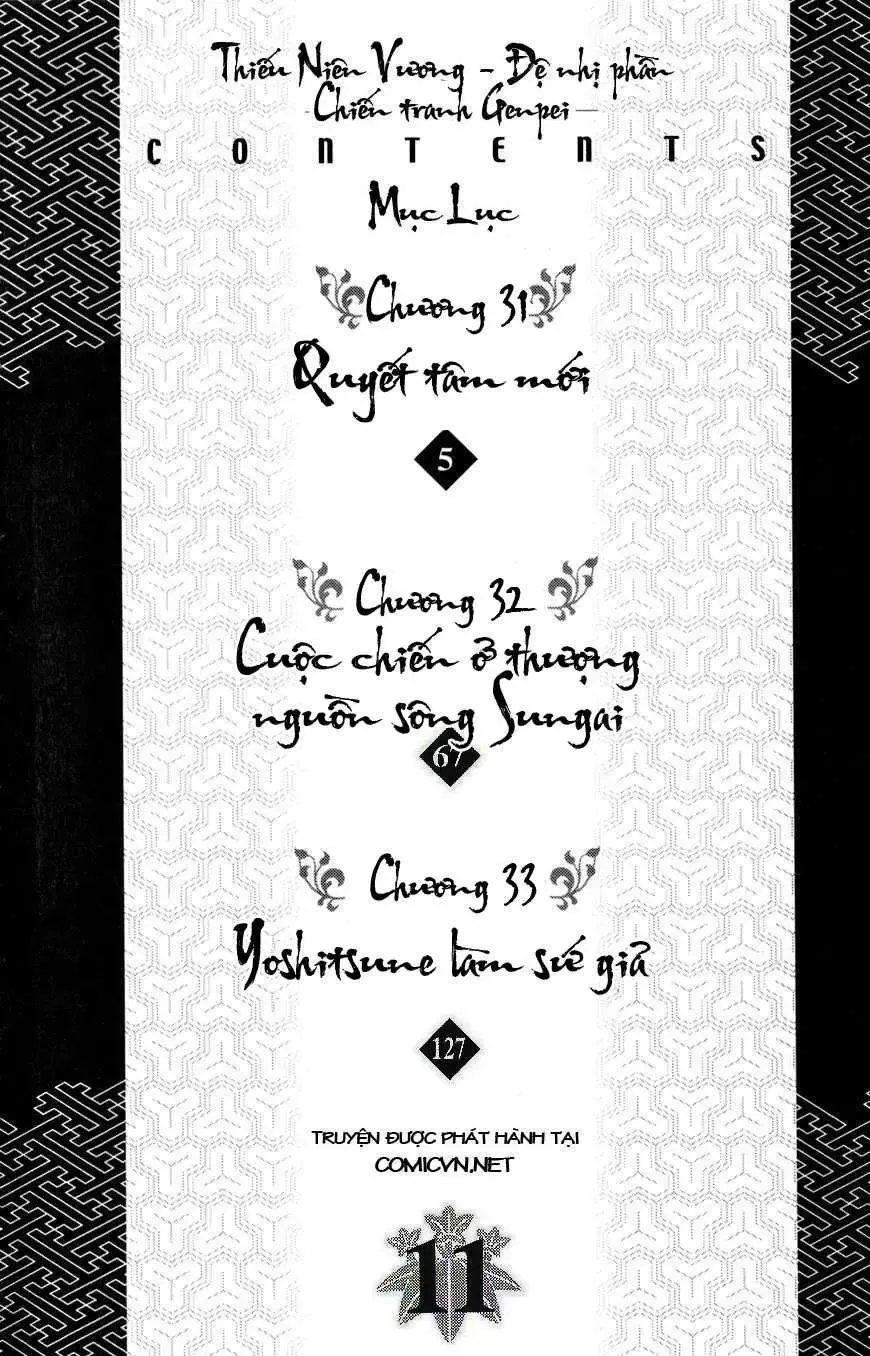 Thiếu Niên Vương - Đệ nhị phần
-Chiến tranh Genpei-
CONTENTS
Mục Lục
Chương 31
Quyết tâm mới
5
Chương 32
Cuộc chiến ở thượng
nguồn sông Sungai
67
Chương 33
Yoshitsune làm sứ giả
127
TRUYỆN ĐƯỢC PHÁT HÀNH TẠI
COMICVN.NET
11